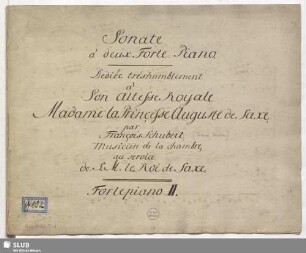 Sonate
à deux Forte Piano
Dediée très humblement
à
Son Altesse Royale
Madame la Princesse Auguste de Saxe,
par
François Schubert,
Musicien de la chambre,
au service
de S. M. le Roi de Saxe
Fortepiano II.
SLUB
Wir führen Wissen.